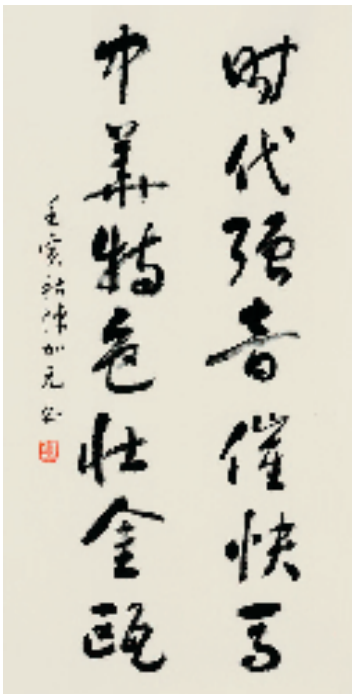 时代强音催快马
中华特色壮金瓯
壬寅陈加元书